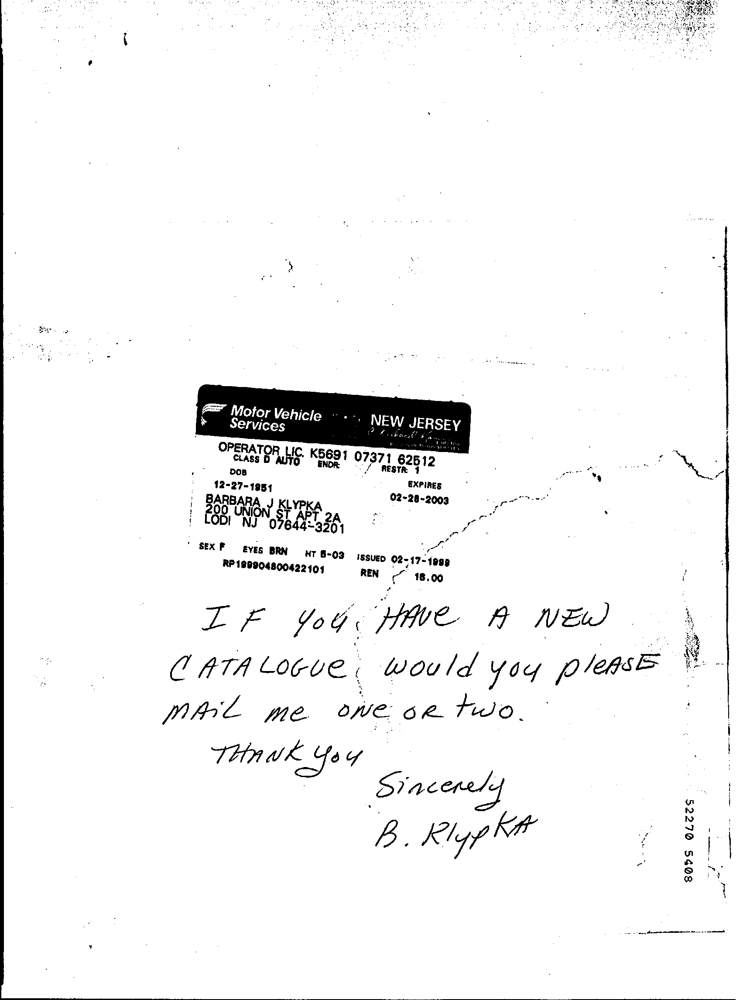 Motor Vehicle
Services
NEW JERSEY
OPERATOR LIC. K5691 07371 62512
CLASS D AUTO ENDR: RESTR: 1
DOB
EXPIRES
12-27-1951
02-28-2003
BARBARA J KLYPKA
200 UNION ST APT 2A
LODI NJ 07644-3201
SEX F EYES BRN HT 5-03 ISSUED 02-17-1999
RP199904800422101 REN 18.00
IF YOU HAVE A NEW
CATALOGUE, would you pleASE
MAIL me ONE OR two.
THANK you
Sincerely
B. KlypKA
52270 5408